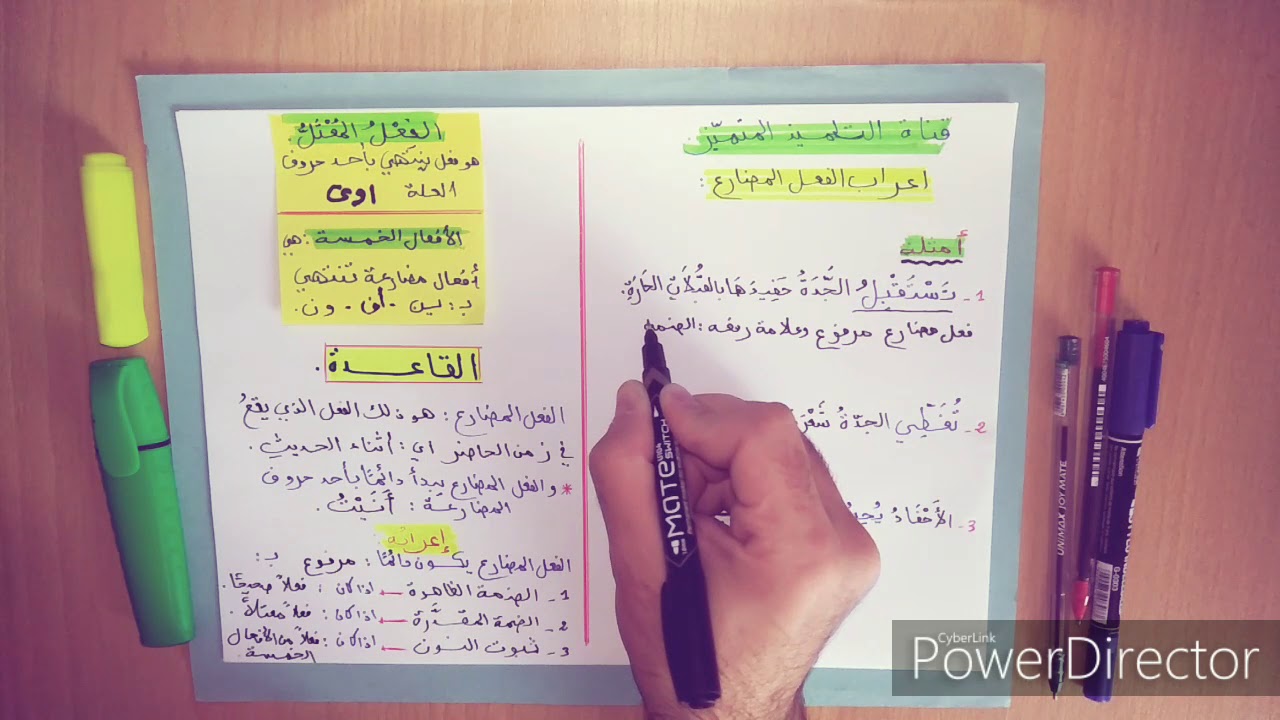 قناة التلميذ المتميّز.
اعراب الفعل المضارع :
أمثلة
1- تَسْتَقْبِلُ الجَّدَةُ حَفِيدَهَا بالقُبُلَاتِ الحَارَّةِ.
فعل مضارع مرفوع وعلامة رفعه : الضمة
2- تُغَطِّي الجدّةُ شَعْرَ
3- الأَحْفَادُ
الفِعْلُ المُعْتَلُّ.
هو فعل ينتهي بأحد حروف
العلة اوى
الأفعال الخمسة : هي
أفعال مضارعة تنتهي
بـ : ين . ان . ون .
القاعدة .
الفعل المضارع : هو ذلك الفعل الذي يقعُ
في زمن الحاضر اي : أثناء الحديث .
* والفعل المضارع يبدأ دائمًا بأحد حروف
المضارعَة : أَنَيْتُ .
إعرابه :
الفعل المضارع يكون دائمًا : مرفوع بـ :
1- الضمة الظاهرة ← اذا كان : فعلاً صحيحًا .
2- الضمة المقدَّرة ← اذا كان : فعلاً معتلاً .
3- ثبوت النون ← اذا كان : فعلاً من الأفعال
الخمسة
MATE
SWITCH
UNIMAX JOY MATE
G-0303
CyberLink
PowerDirector